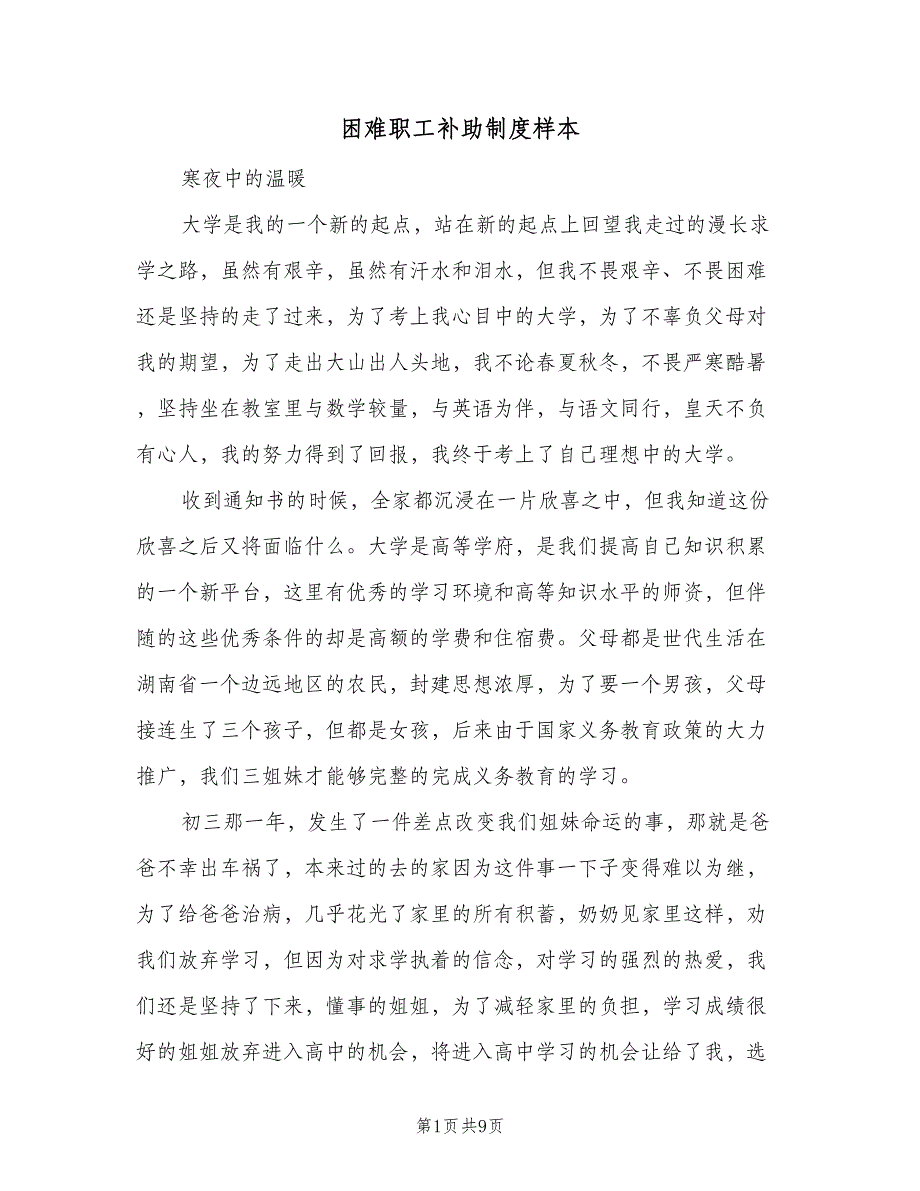 困难职工补助制度样本
寒夜中的温暖
大学是我的一个新的起点，站在新的起点上回望我走过的漫长求
学之路，虽然有艰辛，虽然有汗水和泪水，但我不畏艰辛、不畏困难
还是坚持的走了过来，为了考上我心目中的大学，为了不辜负父母对
我的期望，为了走出大山出人头地，我不论春夏秋冬，不畏严寒酷暑
，坚持坐在教室里与数学较量，与英语为伴，与语文同行，皇天不负
有心人，我的努力得到了回报，我终于考上了自己理想中的大学。
收到通知书的时候，全家都沉浸在一片欣喜之中，但我知道这份
欣喜之后又将面临什么。大学是高等学府，是我们提高自己知识积累
的一个新平台，这里有优秀的学习环境和高等知识水平的师资，但伴
随的这些优秀条件的却是高额的学费和住宿费。父母都是世代生活在
湖南省一个边远地区的农民，封建思想浓厚，为了要一个男孩，父母
接连生了三个孩子，但都是女孩，后来由于国家义务教育政策的大力
推广，我们三姐妹才能够完整的完成义务教育的学习。
初三那一年，发生了一件差点改变我们姐妹命运的事，那就是爸
爸不幸出车祸了，本来过的去的家因为这件事一下子变得难以为继，
为了给爸爸治病，几乎花光了家里的所有积蓄，奶奶见家里这样，劝
我们放弃学习，但因为对求学执着的信念，对学习的强烈的热爱，我
们还是坚持了下来，懂事的姐姐，为了减轻家里的负担，学习成绩很
好的姐姐放弃进入高中的机会，将进入高中学习的机会让给了我，选
第1页 共9页